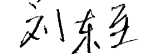 刘东至